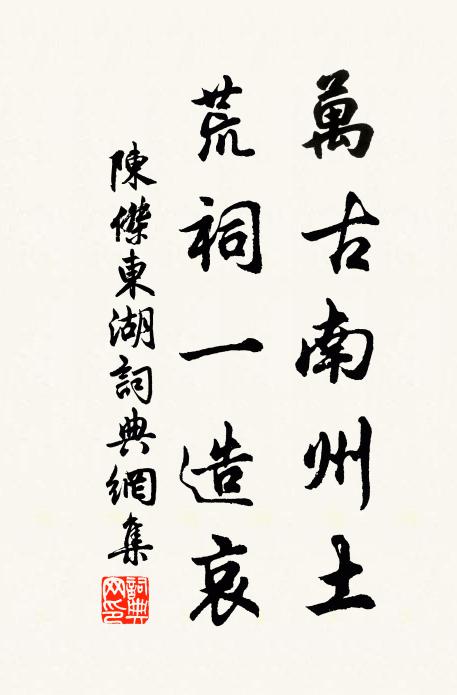 萬古南州土
荒祠一造哀
陳傑東湖詞典網集
詞典網印